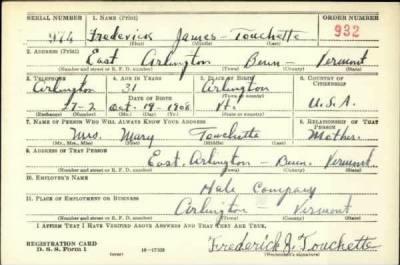 SERIAL NUMBER 1. NAME (Print) ORDER NUMBER
974 Frederick James - Touchette 932
(First) (Middle) (Last)
2. ADDRESS (Print)
East Arlington Benn - Vermont
(Number and street or R. F. D. number) (Town) (County) (State)
3. TELEPHONE 4. AGE IN YEARS 5. PLACE OF BIRTH 6. COUNTRY OF CITIZENSHIP
Arlington 31 Arlington
DATE OF BIRTH (Town or county)
27-2 Oct. 19 - 1908 Vt. U.S.A.
(Exchange) (Number) (Mo.) (Day) (Yr.) (State or country)
7. NAME OF PERSON WHO WILL ALWAYS KNOW YOUR ADDRESS 8. RELATIONSHIP OF THAT PERSON
Mrs. Mary Touchette Mother.
(Mr., Mrs., Miss) (First) (Middle) (Last)
9. ADDRESS OF THAT PERSON
East. Arlington - Benn. Vermont.
(Number and street or R. F. D. number) (Town) (County) (State)
10. EMPLOYER'S NAME
Hale Company
11. PLACE OF EMPLOYMENT OR BUSINESS
Arlington Vermont
(Number and street or R. F. D. number) (Town) (County) (State)
I AFFIRM THAT I HAVE VERIFIED ABOVE ANSWERS AND THAT THEY ARE TRUE.
REGISTRATION CARD
D. S. S. Form 1 (over) Frederick J. Touchette
(Registrant's signature)